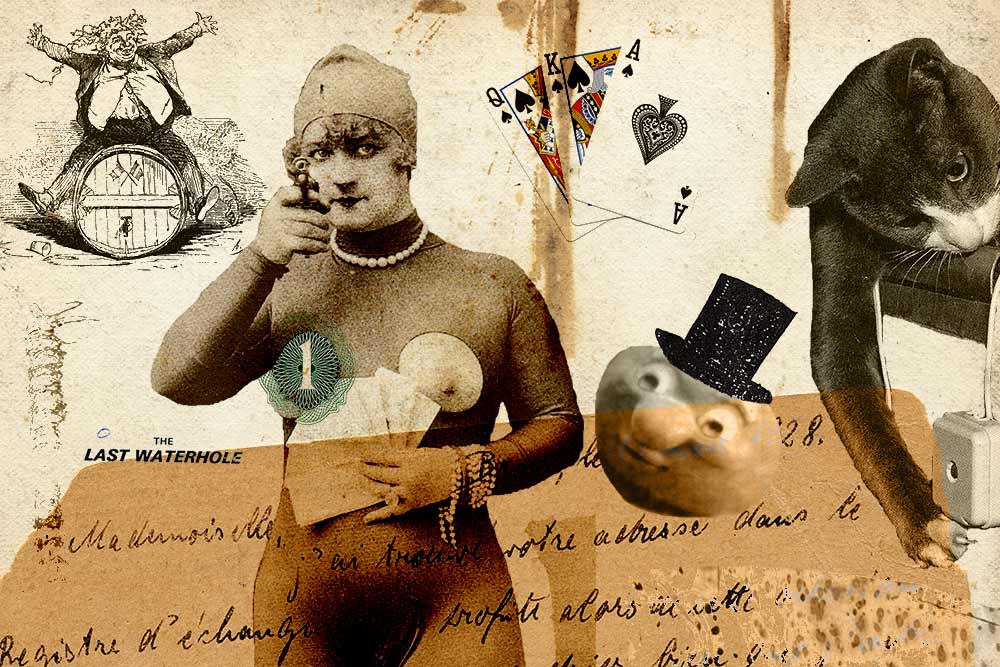 K A
Q
A
1
THE
LAST WATERHOLE
28.
Mademoiselle,
j'ai trouvé votre adresse dans le
Registre d'échange profite alors
bien